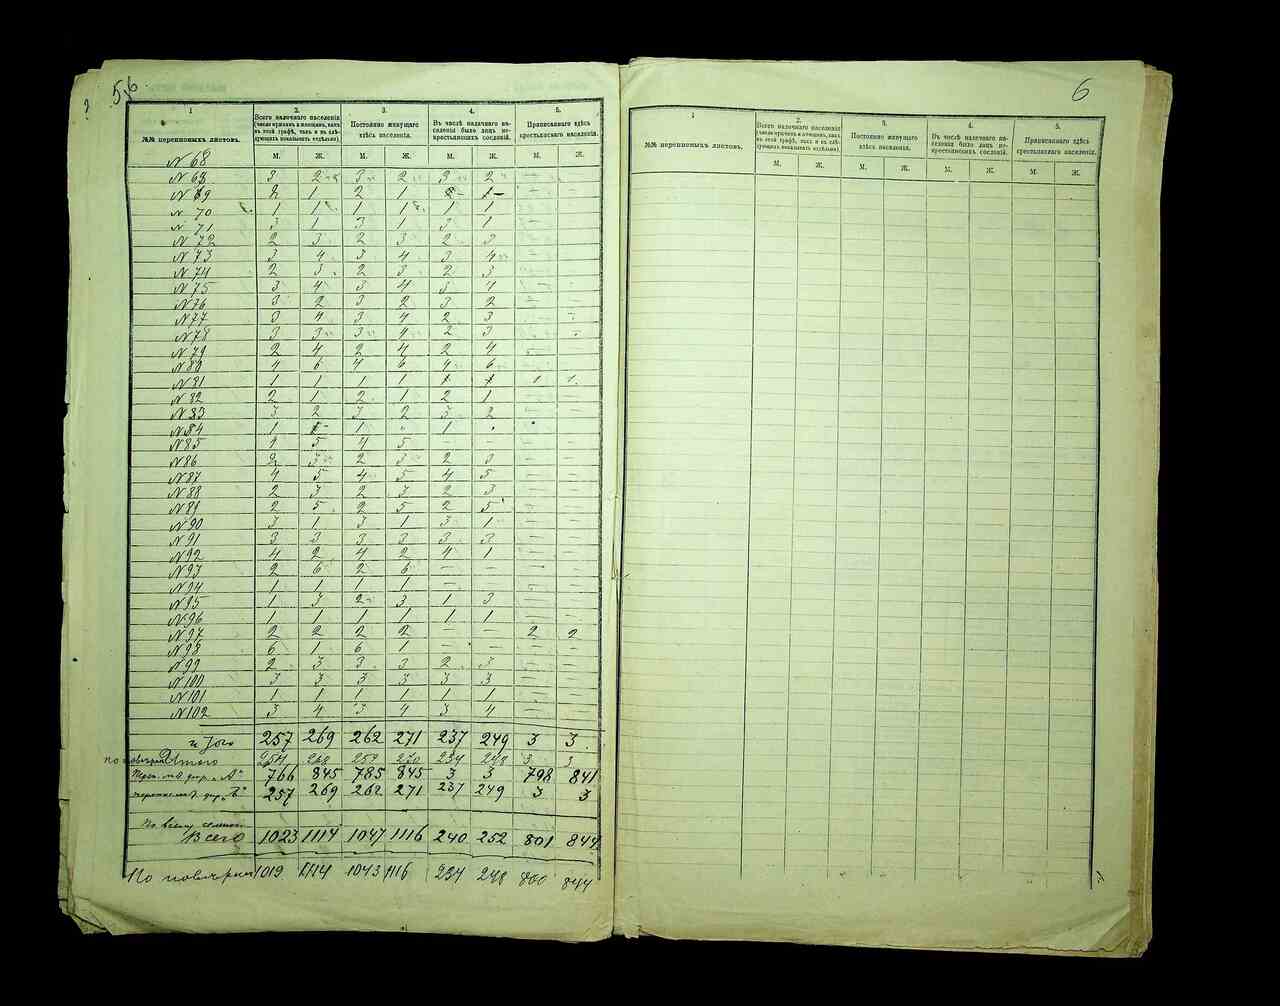 5 6
1
№№ переписныхъ листовъ.
2.
Всего наличнаго населенія (число мужчинъ и женщинъ, какъ въ этой графѣ, такъ и въ слѣдующихъ показывать отдѣльно).
3.
Постоянно живущаго здѣсь населенія.
4.
Въ числѣ наличнаго населенія было лицъ некрестьянскихъ сословій.
5.
Приписаннаго здѣсь крестьянскаго населенія.
М. Ж. М. Ж. М. Ж. М. Ж.
№ 68
№ 68 3 2 3 2 3 2 — —
№ 69 2 1 2 1 — —
№ 70 1 1 1 1 1 1
№ 71 3 1 3 1 3 1 —
№ 72 2 3 2 3 2 3 —
№ 73 3 4 3 4 3 4 — —
№ 74 2 3 2 3 2 3 —
№ 75 3 4 3 4 3 4 — —
№ 76 3 2 3 2 3 2 — —
№ 77 3 4 3 4 2 3 — —
№ 78 3 3 3 4 2 3 —
№ 79 2 4 2 4 2 4 — —
№ 80 4 6 4 6 4 6 — —
№ 81 1 1 1 1 1 1 1 1
№ 82 2 1 2 1 2 1 — —
№ 83 3 2 3 2 3 2 — —
№ 84 1 1 1
№ 85 4 5 4 5 — — — —
№ 86 2 3 2 3 2 3 — —
№ 87 4 5 4 5 4 5 — —
№ 88 2 3 2 3 2 3 — —
№ 89 2 5 2 5 2 5 — —
№ 90 3 1 3 1 3 1 — —
№ 91 3 3 3 3 3 3 — —
№ 92 4 2 4 2 4 1 — —
№ 93 2 6 2 6 — — — —
№ 94 1 1 1 1 — — — —
№ 95 1 3 2 3 1 3 — —
№ 96 1 1 1 1 1 1 — —
№ 97 2 2 2 2 — — 2 2
№ 98 6 1 6 1 — — — —
№ 99 2 3 3 3 2 3 — —
№ 100 3 3 3 3 3 3 — —
№ 101 1 1 1 1 1 1 — —
№ 102 3 4 3 4 3 4 — —
Итого 257 269 262 271 237 249 3 3
Итого 254 268 259 270 234 248 3 3
"А" 766 845 785 845 3 3 798 841
257 269 262 271 237 249 3 3
По всему
Всего 1023 1114 1047 1116 240 252 801 844
По повѣркѣ 1019 1114 1043 1116 234 248 800 844
6
1
№№ переписныхъ листовъ.
2.
Всего наличнаго населенія (число мужчинъ и женщинъ, какъ въ этой графѣ, такъ и въ слѣдующихъ показывать отдѣльно).
3.
Постоянно живущаго здѣсь населенія.
4.
Въ числѣ наличнаго населенія было лицъ некрестьянскихъ сословій.
5.
Приписаннаго здѣсь крестьянскаго населенія.
М. Ж. М. Ж. М. Ж. М. Ж.